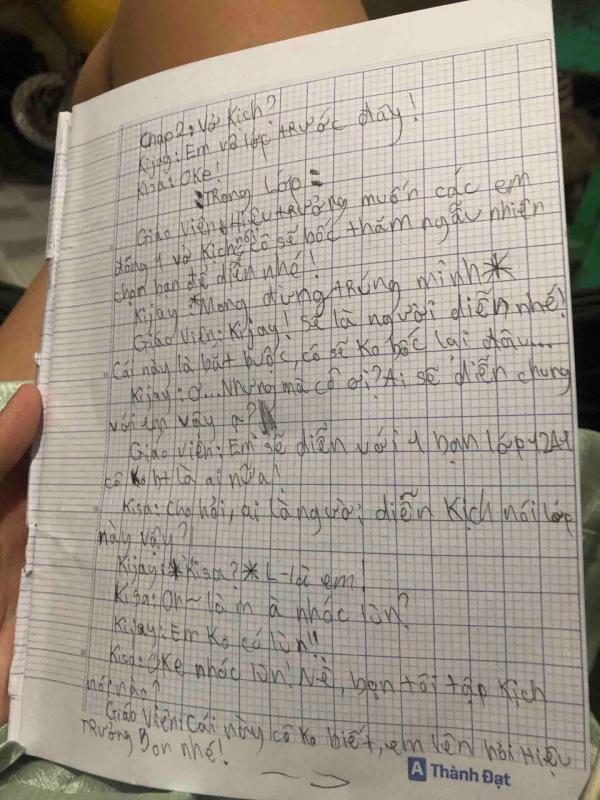 Chap 2: Vở Kịch?
Kijay: Em về lớp trước đây!
Kisa: OKe!
=Trong Lớp=
Giáo Viên: Hiệu trưởng muốn các em
đóng 1 vở Kịch nói cô sẽ bốc thăm ngẫu nhiên
chọn bạn để diễn nhé!
Kijay: *Mong đừng trúng mình*
Giáo Viên: Kijay! Sẽ là người diễn nhé!
Cái này là bắt buộc, cô sẽ Ko bốc lại đâu...
Kijay: Ơ... Nhưng mà cô ơi? Ai sẽ diễn chung
với em vậy ạ?
Giáo Viên: Em sẽ diễn với 1 bạn lớp 12A1
cô Ko bt là ai nữa!
Kisa: Cho hỏi, ai là người diễn Kịch nói lớp
này vậy?
Kijay: *Kisa?* L-là em!
Kisa: Oh~ là m à nhóc lùn?
Kijay: Em Ko có lùn!!
Kisa: OKe nhóc lùn! Nè, bọn tôi tập Kịch
nơi nào?
Giáo Viên: Cái này cô Ko biết, em lên hỏi Hiệu
Trưởng Don nhé!
Thành Đạt